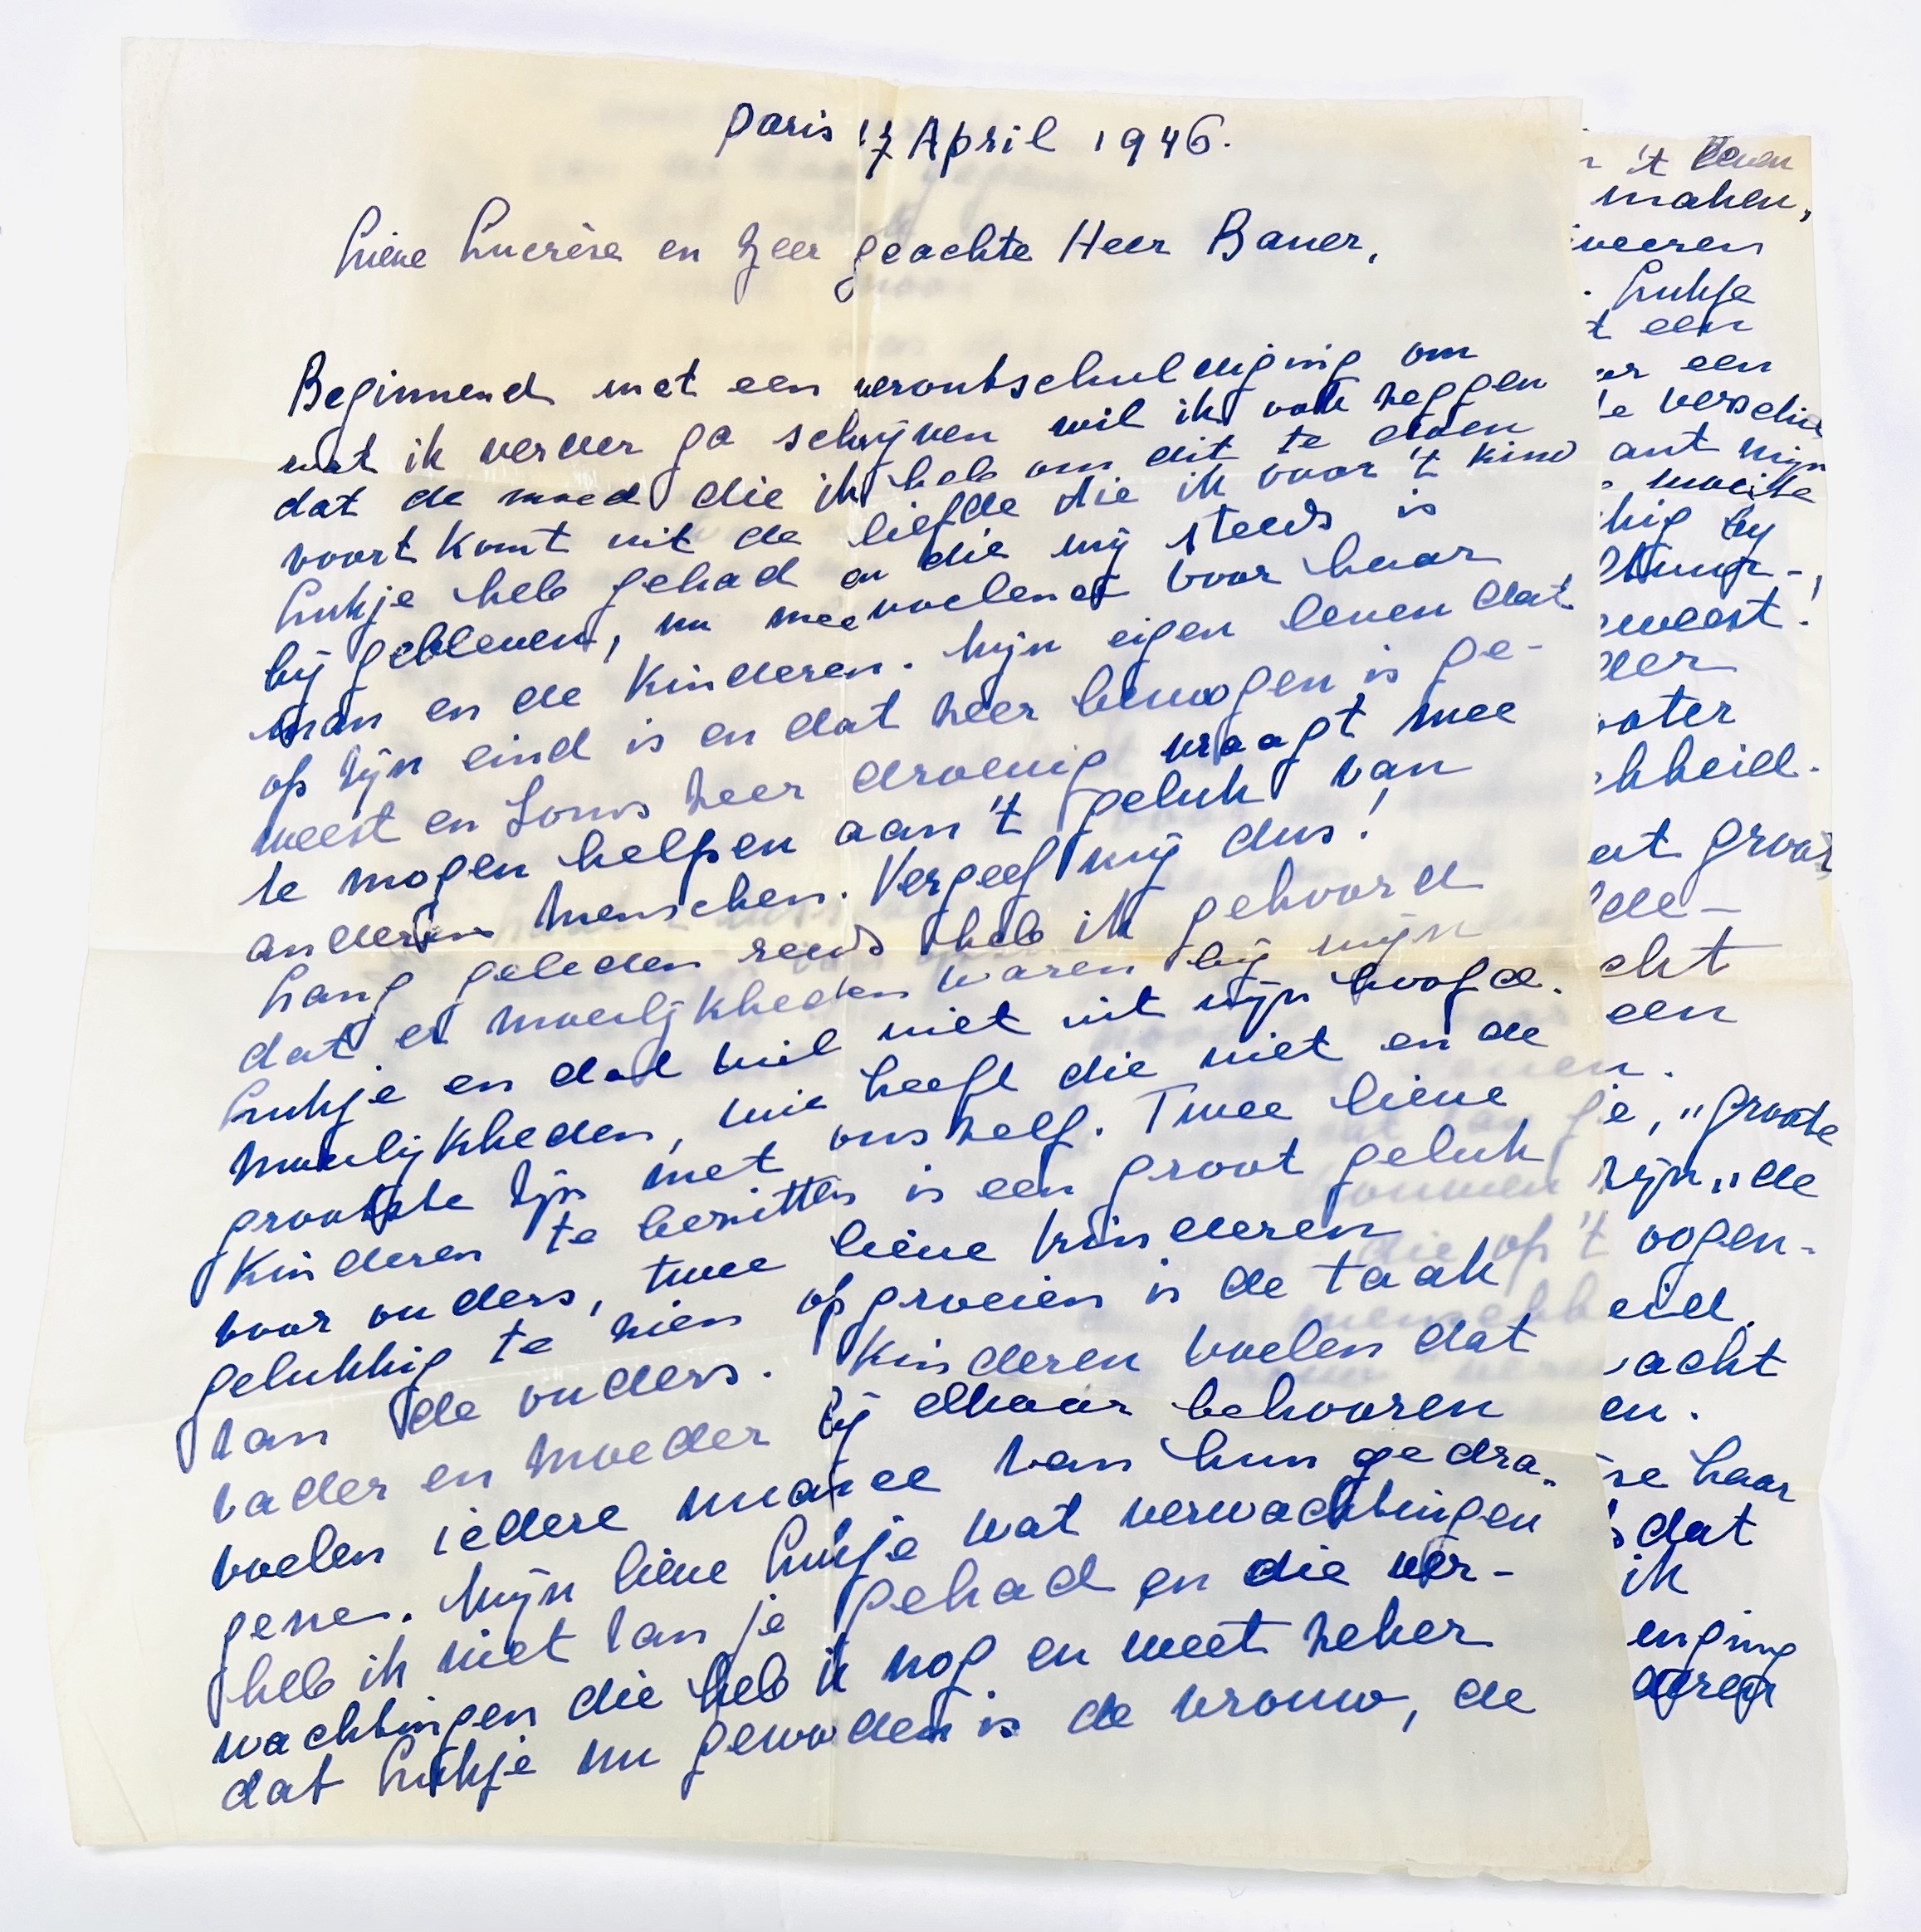 Paris 17 April 1946.
Lieve Lucrèse en zeer geachte Heer Bauer,
Beginnend met een verontschuldiging om
wat ik verder ga schrijven wil ik ook zeggen
dat de moed die ik heb om dit te doen
voort komt uit de liefde die ik voor 't kind
Lukje heb gehad en die mij steeds is
bij gebleven, nu meevoelend voor haar
man en de Kinderen. Mijn eigen leven dat
op zijn eind is en dat zeer bewogen is ge-
weest en soms zeer droevig vraagt mee
te mogen helpen aan 't geluk van
anderen menschen. Vergeef mij dus!
Lang geleden reeds heb ik gehoord
dat er moeilijkheden waren bij mijn
Lukje en dat wil niet uit mijn hoofd.
Moeilijkheden, wie heeft die niet en de
grootste zijn met ons zelf. Twee lieve
Kinderen te bezitten is een groot geluk
voor ouders, twee lieve kinderen
gelukkig te zien opgroeien is de taak
van de ouders. Kinderen voelen dat
vader en moeder bij elkaar behooren
voelen iedere nuance van hun gedra-
gene. Mijn lieve Lukje wat verwachtingen
heb ik niet van je gehad en die ver-
wachtingen die heb ik nog en weet zeker
dat Lukje nu geworden is de vrouw, de
't leven
maken,
weeren
. Lukje
t een
een
verschil
ant mijn
moeite
kig bij
eweest!
der
oter
kheid.
at groot
de-
cht
een
e, „groote
zijn „de
oogen-
eid.
acht
en.
se haar
dat
ik